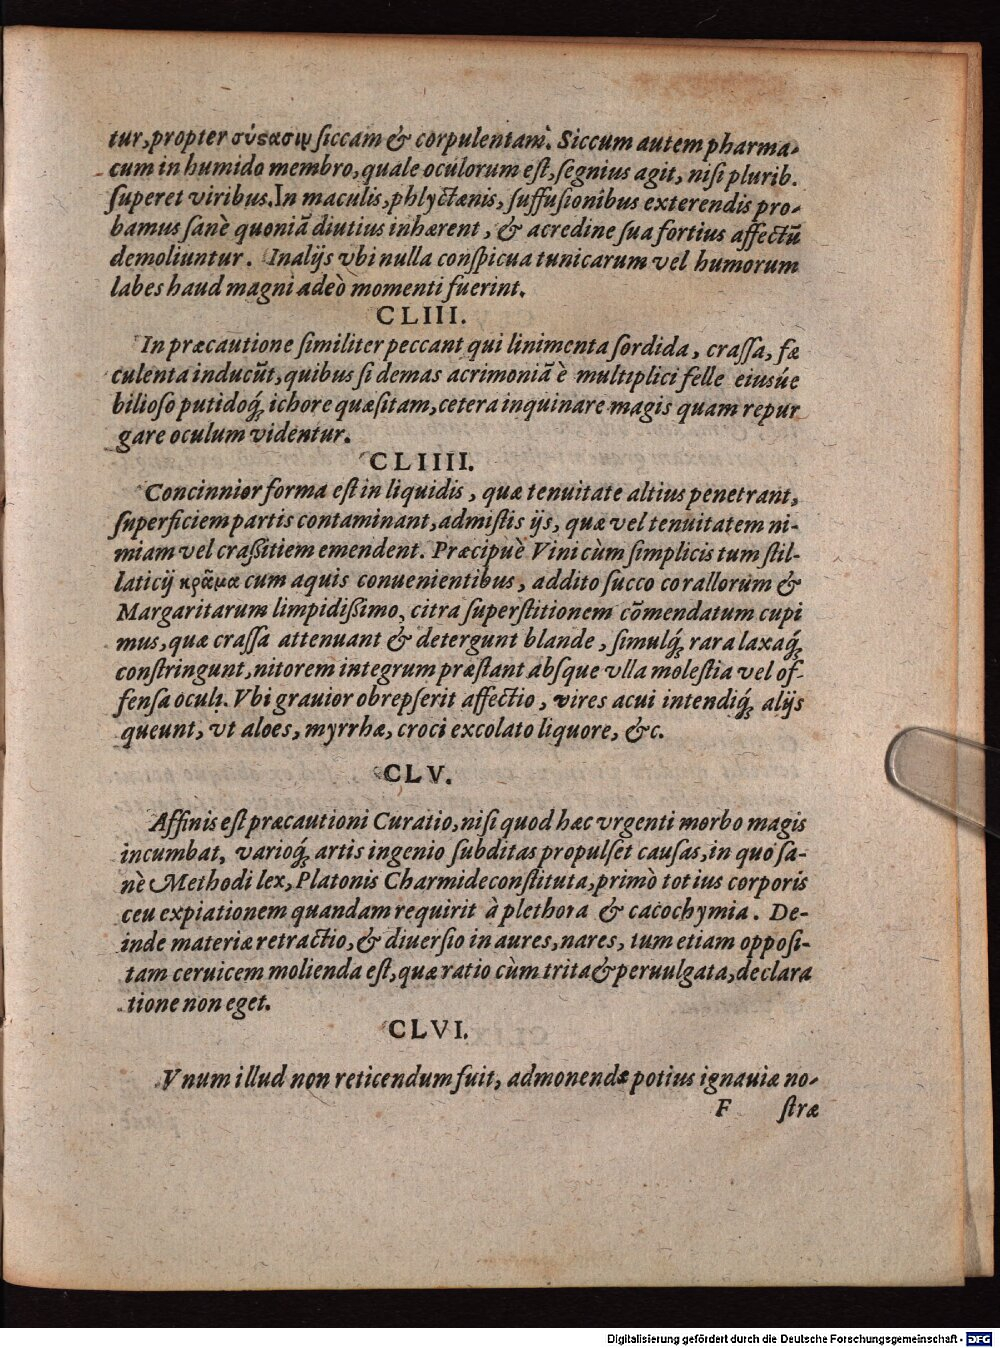 tur, propter σύςασιν siccam & corpulentam. Siccum autem pharma-
cum in humido membro, quale oculorum est, segnius agit, nisi plurib.
superet viribus. In maculis, phlyctænis, suffusionibus exterendis pro-
bamus sanè quoniã diutius inhærent, & acredine sua fortius affectũ
demoliuntur. In alijs vbi nulla conspicua tunicarum vel humorum
labes haud magni adeò momenti fuerint.
CLIII.
In præcautione similiter peccant qui linimenta sordida, crassa, fæ
culenta inducũt, quibus si demas acrimoniã è multiplici felle eiusúe
bilioso putidoq́; ichore quæsitam, cetera inquinare magis quam repur
gare oculum videntur.
CLIIII.
Concinnior forma est in liquidis, quæ tenuitate altius penetrant,
superficiem partis contaminant, admistis ijs, quæ vel tenuitatem ni-
miam vel crassitiem emendent. Præcipuè Vini cùm simplicis tum stil-
laticij κρᾶμα cum aquis conuenientibus, addito succo corallorum &
Margaritarum limpidissimo, citra superstitionem cõmendatum cupi
mus, quæ crassa attenuant & detergunt blande, simulq́; rara laxaq́;
constringunt, nitorem integrum præstant absque vlla molestia vel of-
fensa oculi. Vbi grauior obrepserit affectio, vires acui intendiq́; alijs
queunt, vt aloes, myrrhæ, croci excolato liquore, &c.
CLV.
Affinis est præcautioni Curatio, nisi quod hæc vrgenti morbo magis
incumbat, varioq́; artis ingenio subditas propulset causas, in quo sa-
nè Methodi lex, Platonis Charmide constituta, primò totius corporis
ceu expiationem quandam requirit à plethora & cacochymia. De-
inde materiæ retractio, & diuersio in aures, nares, tum etiam opposi-
tam ceruicem molienda est, quæ ratio cùm trita & peruulgata, declara
tione non eget.
CLVI.
Vnum illud non reticendum fuit, admonendæ potius ignauiæ no-
F stræ
Digitalisierung gefördert durch die Deutsche Forschungsgemeinschaft - DFG